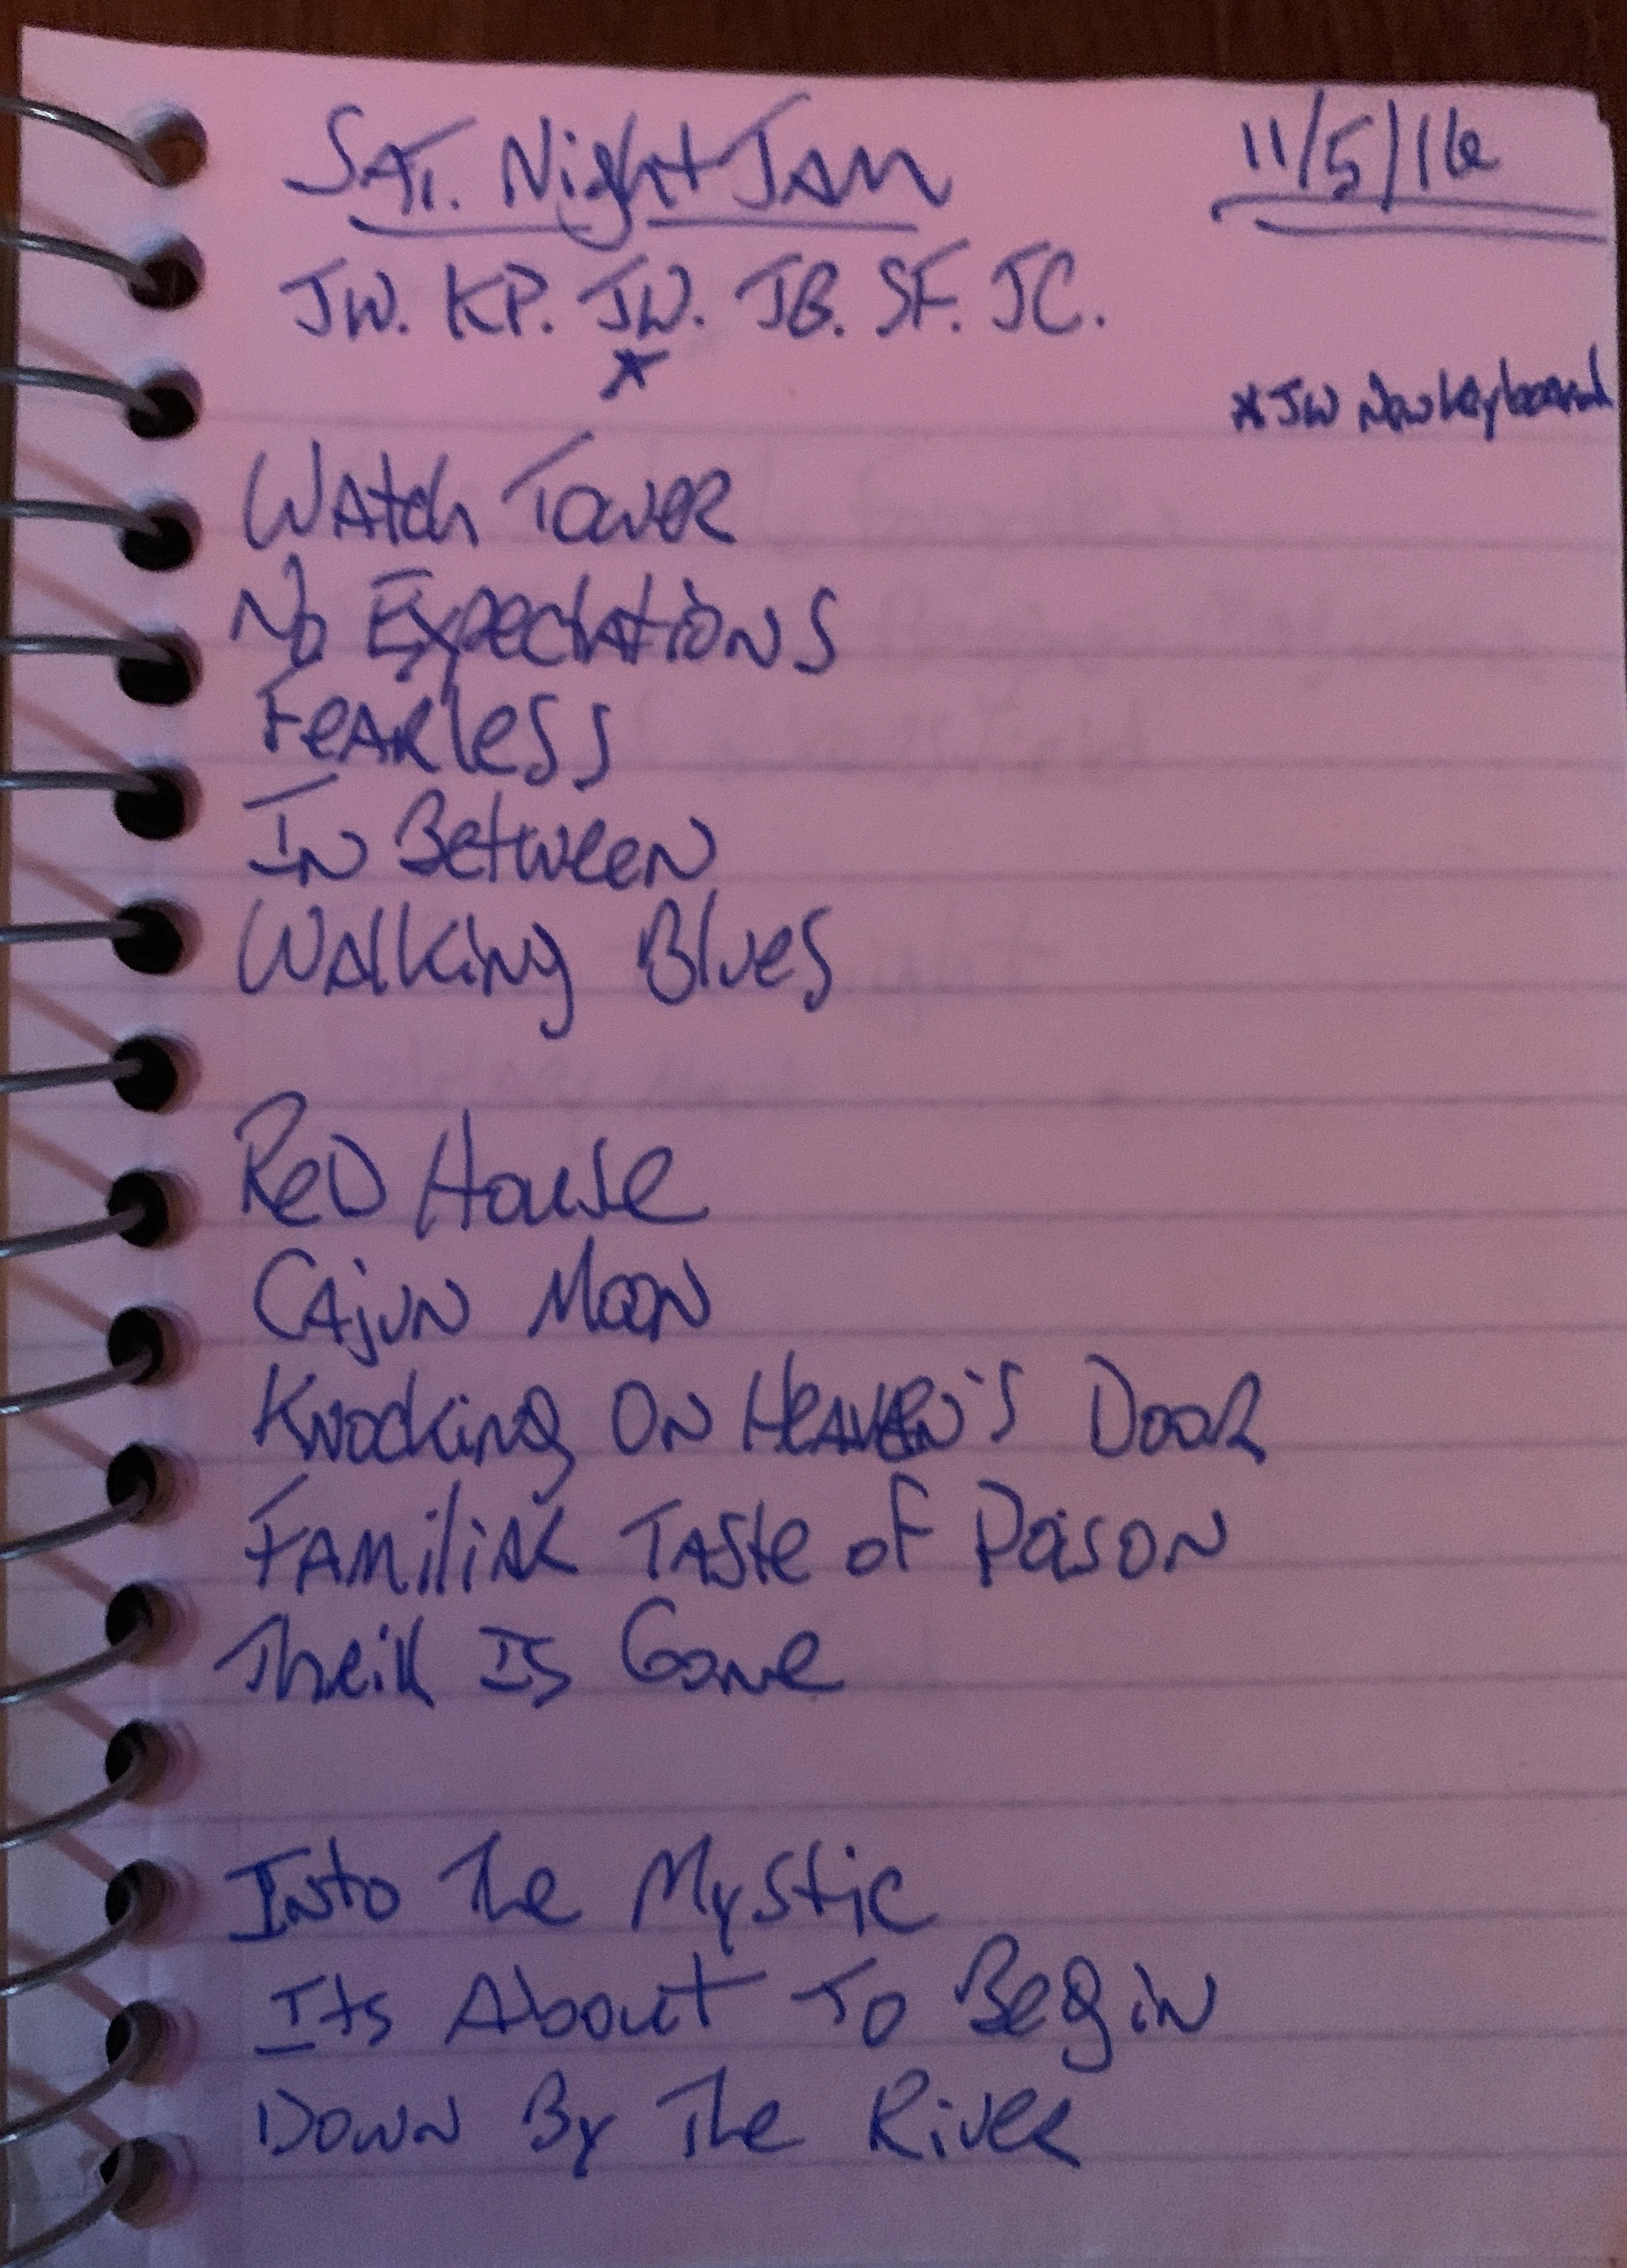 SAT. Night JAM 11/5/16
JW. KP. JW. JB. SF. JC.
*
* JW New keyboard
WAtch Tower
No ExpectAtions
FeARless
In Between
WAlking Blues
Red House
CAjun Moon
Knocking On HeAven's Door
FAmiliAR TAste of Poison
Their Is Gone
Into The Mystic
Its About To Begin
Down By The River